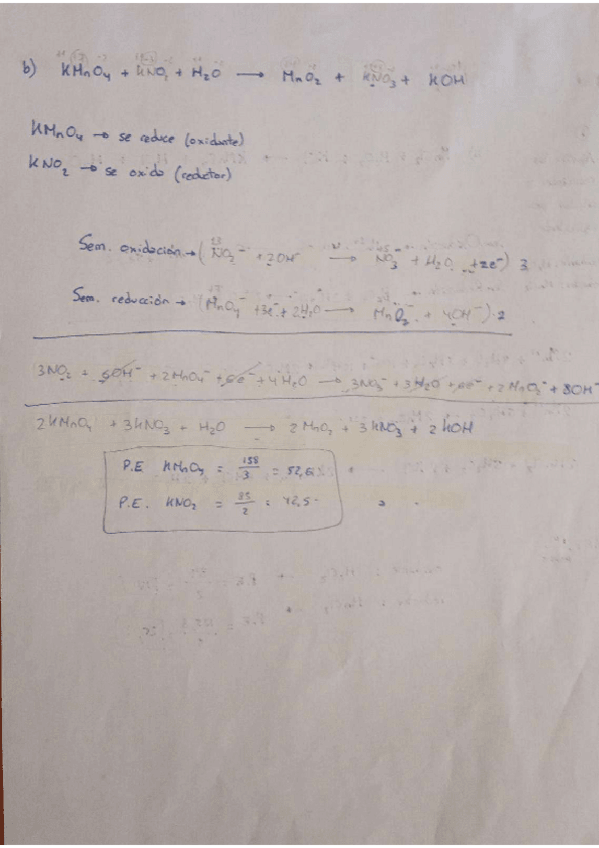 b) KMnO₄ + KNO₂ + H₂O → MnO₂ + KNO₃ + KOH
KMnO₄ → se reduce (oxidante)
KNO₂ → se oxida (reductor)
Sem. oxidación → ( NO₂⁻ + 2OH⁻ → NO₃⁻ + H₂O + 2e⁻ ) 3
Sem. reducción → ( MnO₄⁻ + 3e⁻ + 2H₂O → MnO₂ + 4OH⁻ ) · 2
3NO₂ + 6OH⁻ + 2MnO₄⁻ + 6e⁻ + 4H₂O → 3NO₃⁻ + 3H₂O + 6e⁻ + 2MnO₂ + 8OH⁻
2KMnO₄ + 3KNO₃ + H₂O → 2MnO₂ + 3KNO₃ + 2KOH
P.E KMnO₄ = 158/3 = 52,6
P.E. KNO₂ = 85/2 = 42,5